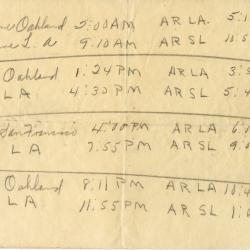 Oakland 2:00 AM AR LA. 5:1
L. A 9:10 AM AR SL 10:5
Oakland 1:24 PM AR LA 3:5
L A 4:30 PM AR SL 5:4
San Francisco 4:00 PM AR LA 6:
L A 7:55 PM AR SL 9:0
Oakland 8:11 PM AR LA 10:4
L A 11:55 PM AR SL 1: